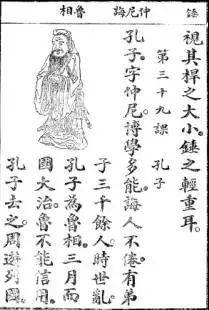 錘
仲尼誨
魯相
視其桿之大小。錘之輕重耳。
第三十九課　孔子
孔子字仲尼。博學多能。誨人不倦。有弟
子三千餘人。時世亂。
孔子為魯相。三月而
國大治。魯不能信用。
孔子去之。周遊列國。